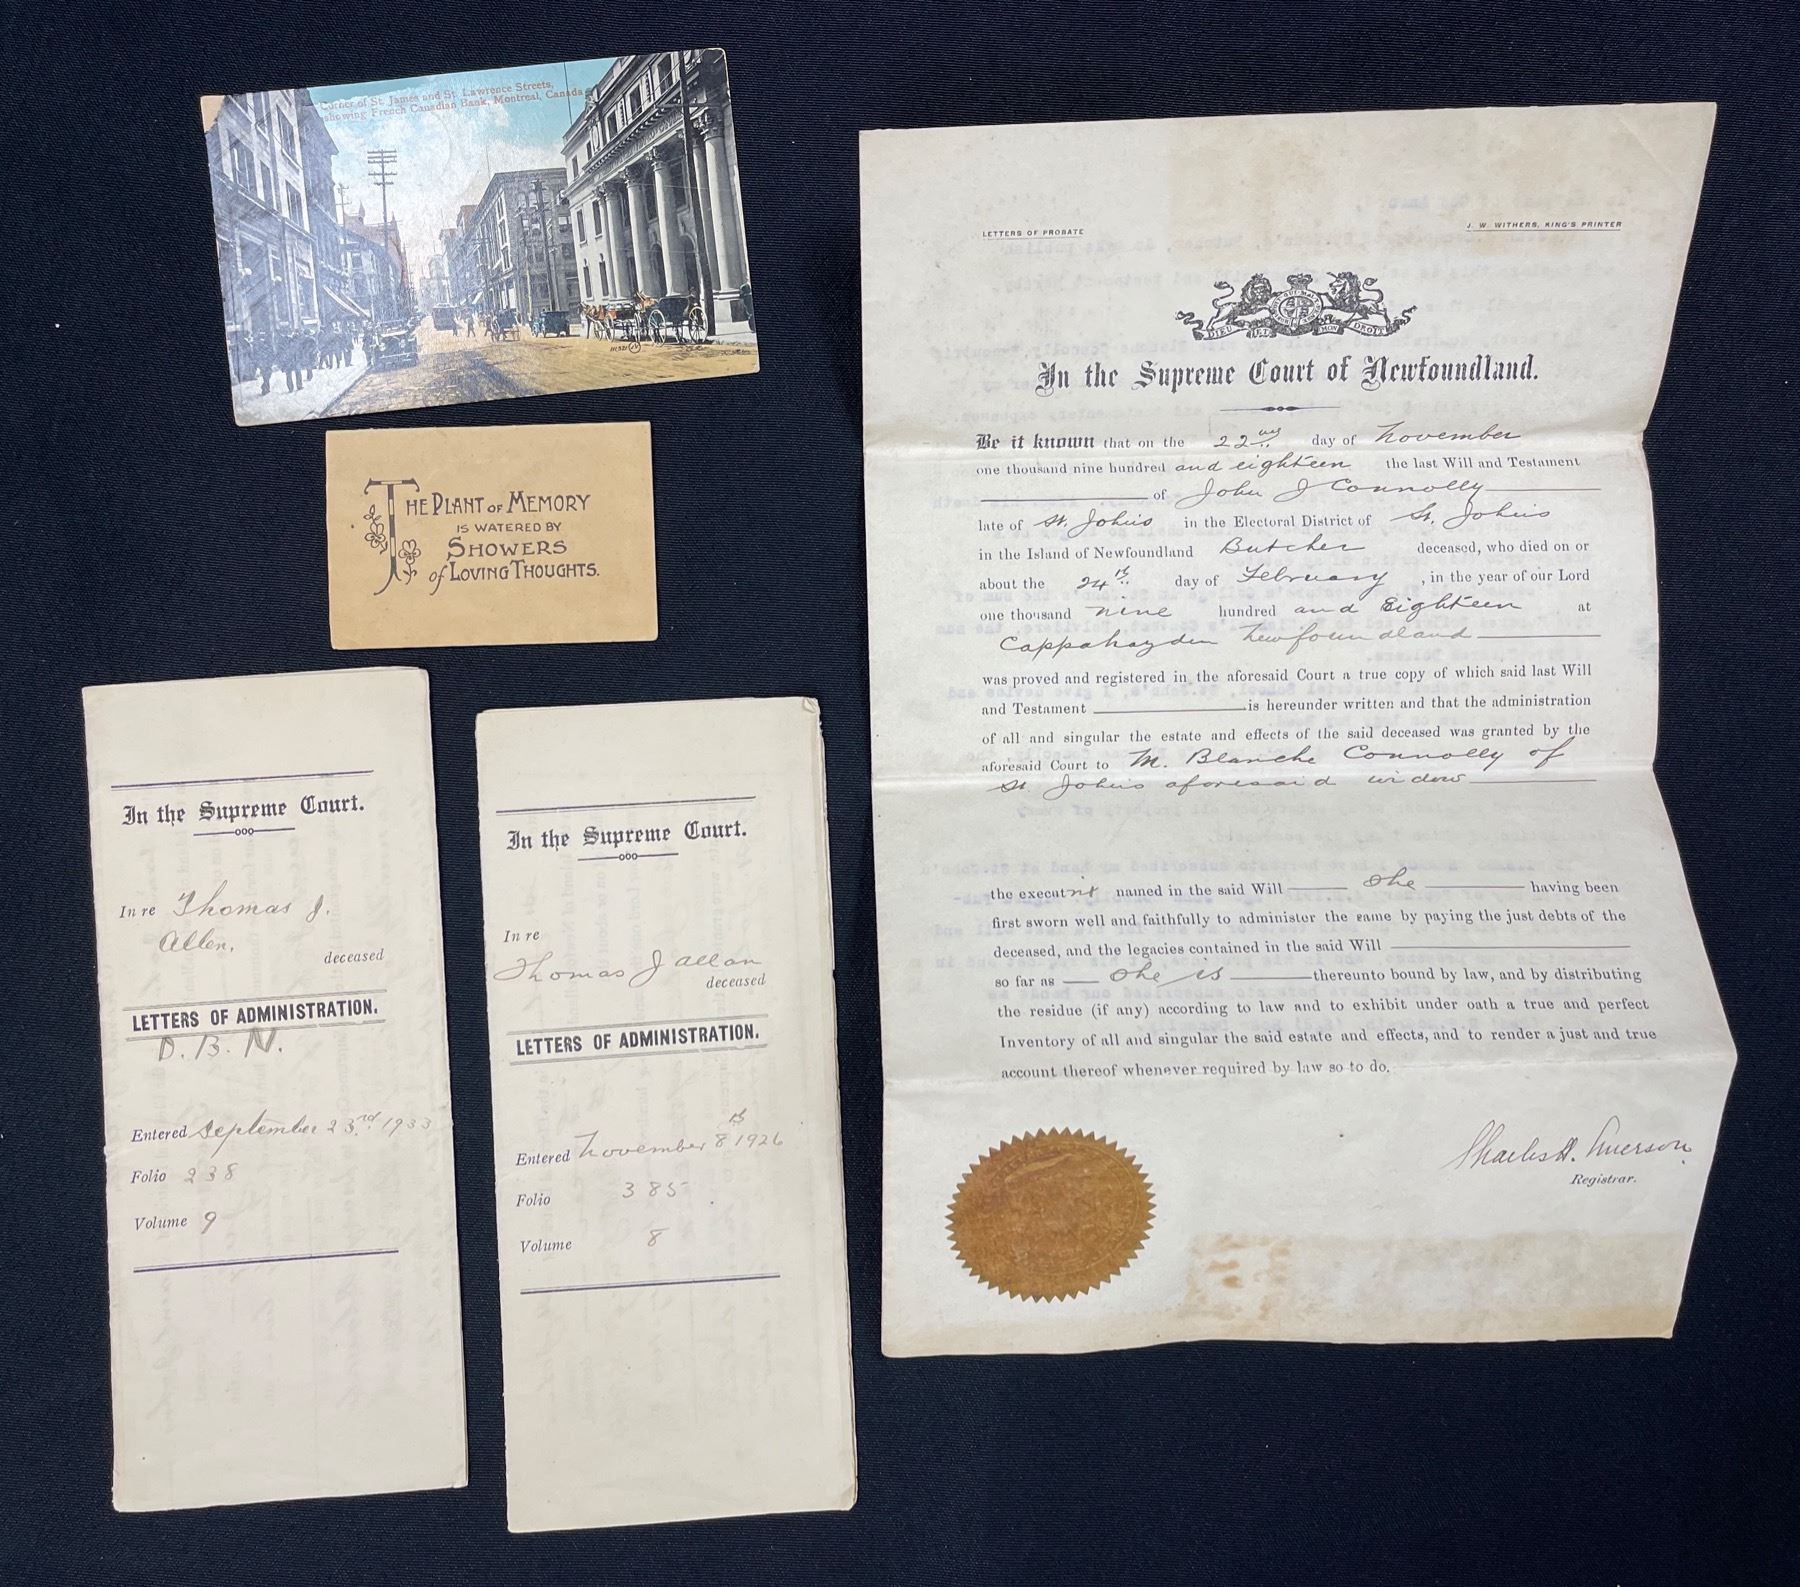 Corner of St. James and St. Lawrence Streets,
showing French Canadian Bank, Montreal, Canada
THE PLANT OF MEMORY
IS WATERED BY
SHOWERS
of LOVING THOUGHTS.
In the Supreme Court.
In re Thomas J.
Allen,
deceased
LETTERS OF ADMINISTRATION.
D. B. N.
Entered September 23rd 1933
Folio 238
Volume 9
In the Supreme Court.
In re
Thomas J Allan
deceased
LETTERS OF ADMINISTRATION.
Entered November 8th 1926
Folio 385
Volume 8
LETTERS OF PROBATE
J. W. WITHERS, KING'S PRINTER
DIEU ET MON DROIT
In the Supreme Court of Newfoundland.
Be it known that on the 22nd day of November
one thousand nine hundred and eighteen the last Will and Testament
of John J Connolly
late of St. John's in the Electoral District of St. John's
in the Island of Newfoundland Butcher deceased, who died on or
about the 24th day of February, in the year of our Lord
one thousand nine hundred and Eighteen at
Cappahayden Newfoundland
was proved and registered in the aforesaid Court a true copy of which said last Will
and Testament is hereunder written and that the administration
of all and singular the estate and effects of the said deceased was granted by the
aforesaid Court to M. Blanche Connolly of
St. John's aforesaid widow
the executrix named in the said Will she having been
first sworn well and faithfully to administer the same by paying the just debts of the
deceased, and the legacies contained in the said Will
so far as she is thereunto bound by law, and by distributing
the residue (if any) according to law and to exhibit under oath a true and perfect
Inventory of all and singular the said estate and effects, and to render a just and true
account thereof whenever required by law so to do.
Charles H. Emerson
Registrar.